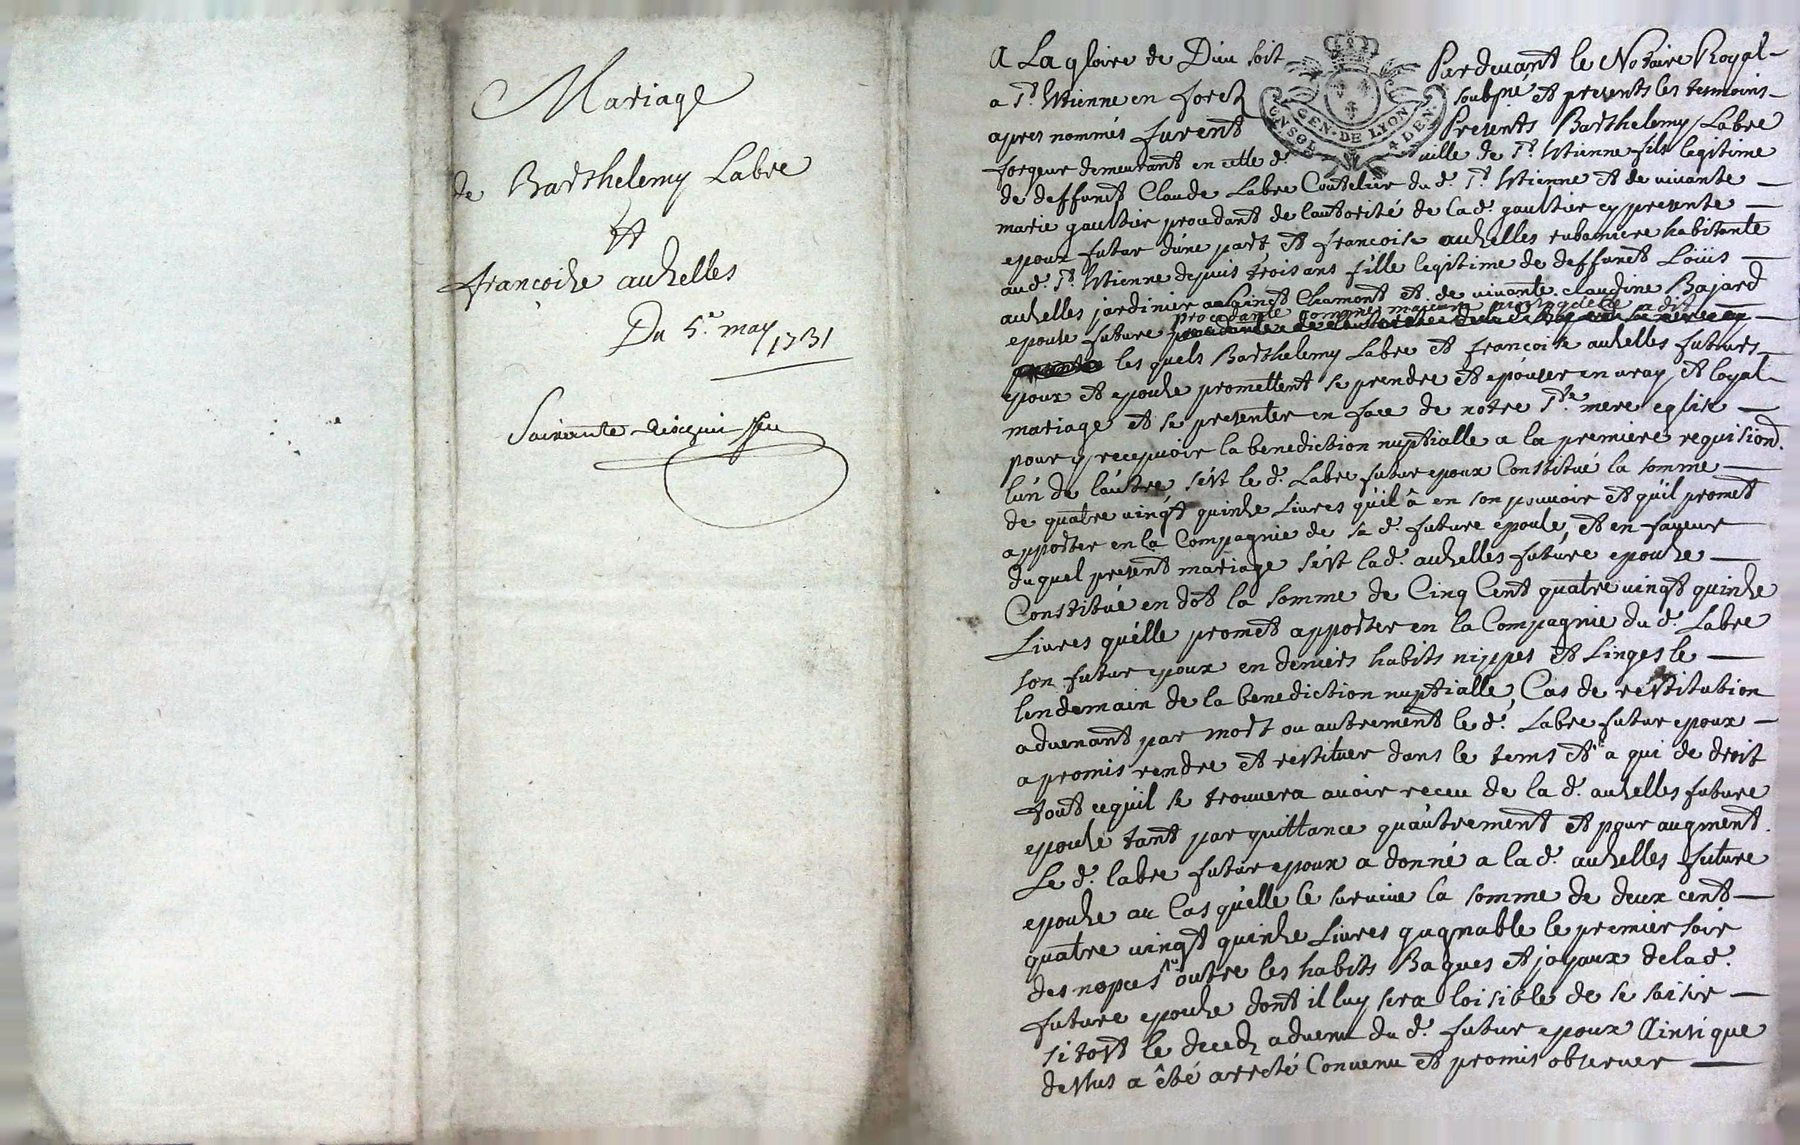 Mariage
de Barthelemy Labre
Et
francoize auzelles
Du 5.e may 1731
Soixante
A La gloire de Dieu soit Pardevant le Notaire Royal
a St. Etienne en forez soubzné et presents les temoins
apres nommés furent Presents Barthelemy Labre
forgeur demeurant en cette d. ville de St. Etienne fils legitime
de deffunct Claude Labre Coutelier du d. St. Etienne et de vivante
marie gaultier procedant de lautorité de lad. gaultier cy presente
epoux futur dúne part et francoise auzelles rubaniere habitante
aud. St. Etienne depuis trois ans fille legitime de deffunct Loüis
auzelles jardinier a Sainct Chamont et de vivante claudine Bajard
procedante comme majeure
epouse future
les quels Barthelemy Labre et francoise auzelles futurs
epoux et epouze promettent se prendre et epouser en vray et loyal
mariage et se presenter en face de notre Ste mere eglise
pour y recepvoir la benediction nuptialle a la premiere requisiond.
lún de láutre sést le d. Labre futur epoux Constitué la somme
de quatre vingt quinze Livres quil â en son pouvoir et quil promet
apporter en la Compagnie de sa d. future epouse, et en faveur
du quel present mariage sést lad. auzelles future epouze
Constitué en dot la somme de Cinq Cent quatre vingt quinze
Livres quélle promet apporter en la Compagnie du d. Labre
son futur epoux en deniers habits nippes et Linges le
lendemain de la benediction nuptialle, Cas de restitution
advenant par mort ou autrement le d. Labre futur epoux
a promis rendre et restituer dans le tems et a qui de droit
tout cequil se trouvera avoir receu de la d. auzelles future
epouze tant par quittance quáutrement et pour augment.
Le d. labre futur epoux a donné a la d. auzelles future
epouze au Cas quélle le survive la somme de deux cent
quatre vingt quinze Livres gagnable le premier soir
des nopces outre les habits Bagues et joyaux de la d.
future epouze dont il luy sera loisible de se saisir
sitost le decedz advenu du d. futur epoux Ainsi que
dessus a êté arresté Convenu et promis observer
GEN. DE LYON